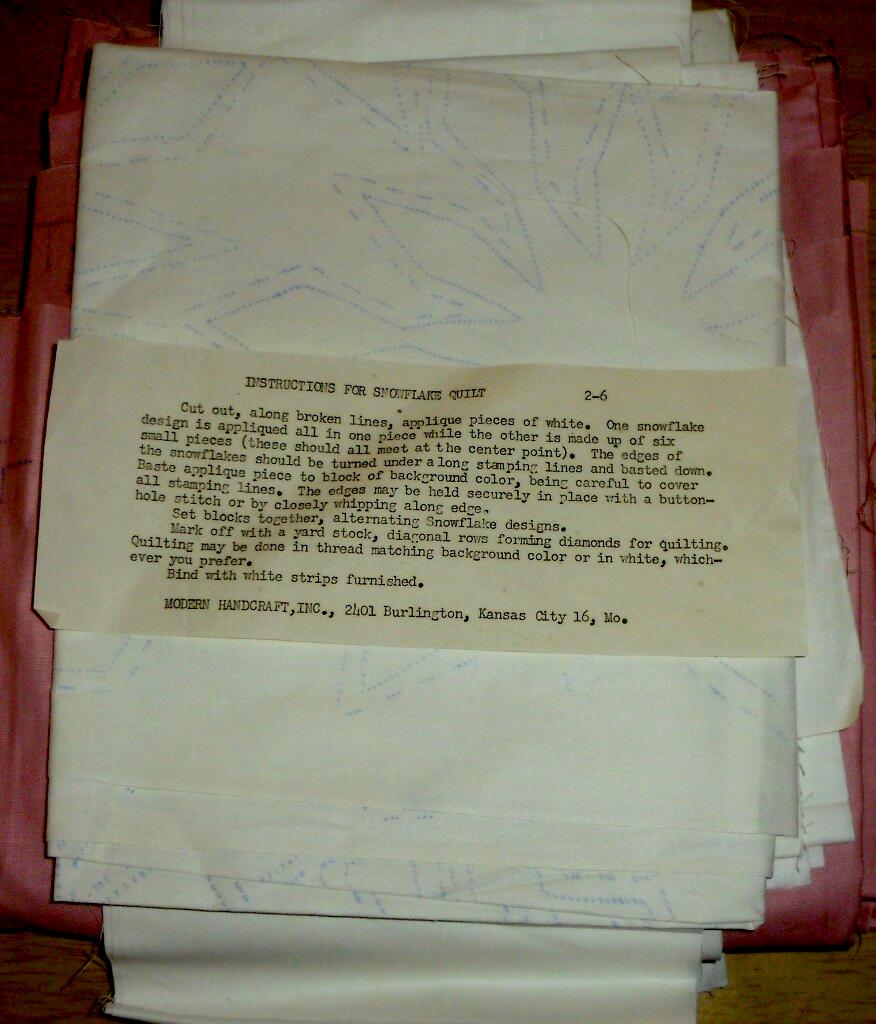 INSTRUCTIONS FOR SNOWFLAKE QUILT 2-6
Cut out, along broken lines, applique pieces of white. One snowflake
design is appliqued all in one piece while the other is made up of six
small pieces (these should all meet at the center point). The edges of
the snowflakes should be turned under along stamping lines and basted down.
Baste applique piece to block of background color, being careful to cover
all stamping lines. The edges may be held securely in place with a button-
hole stitch or by closely whipping along edge.
Set blocks together, alternating Snowflake designs.
Mark off with a yard stock, diagonal rows forming diamonds for quilting.
Quilting may be done in thread matching background color or in white, which-
ever you prefer.
Bind with white strips furnished.
MODERN HANDCRAFT,INC., 2401 Burlington, Kansas City 16, Mo.